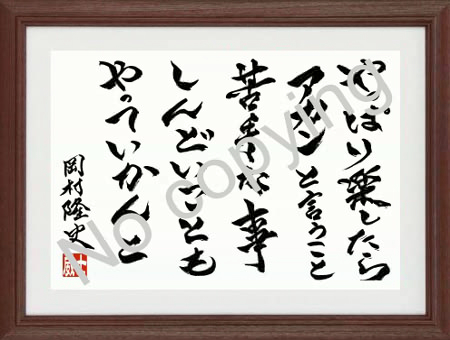 やっぱり楽したら
アカンと言うこと
苦手な事
しんどいことも
やっていかんと
岡村隆史
No copying